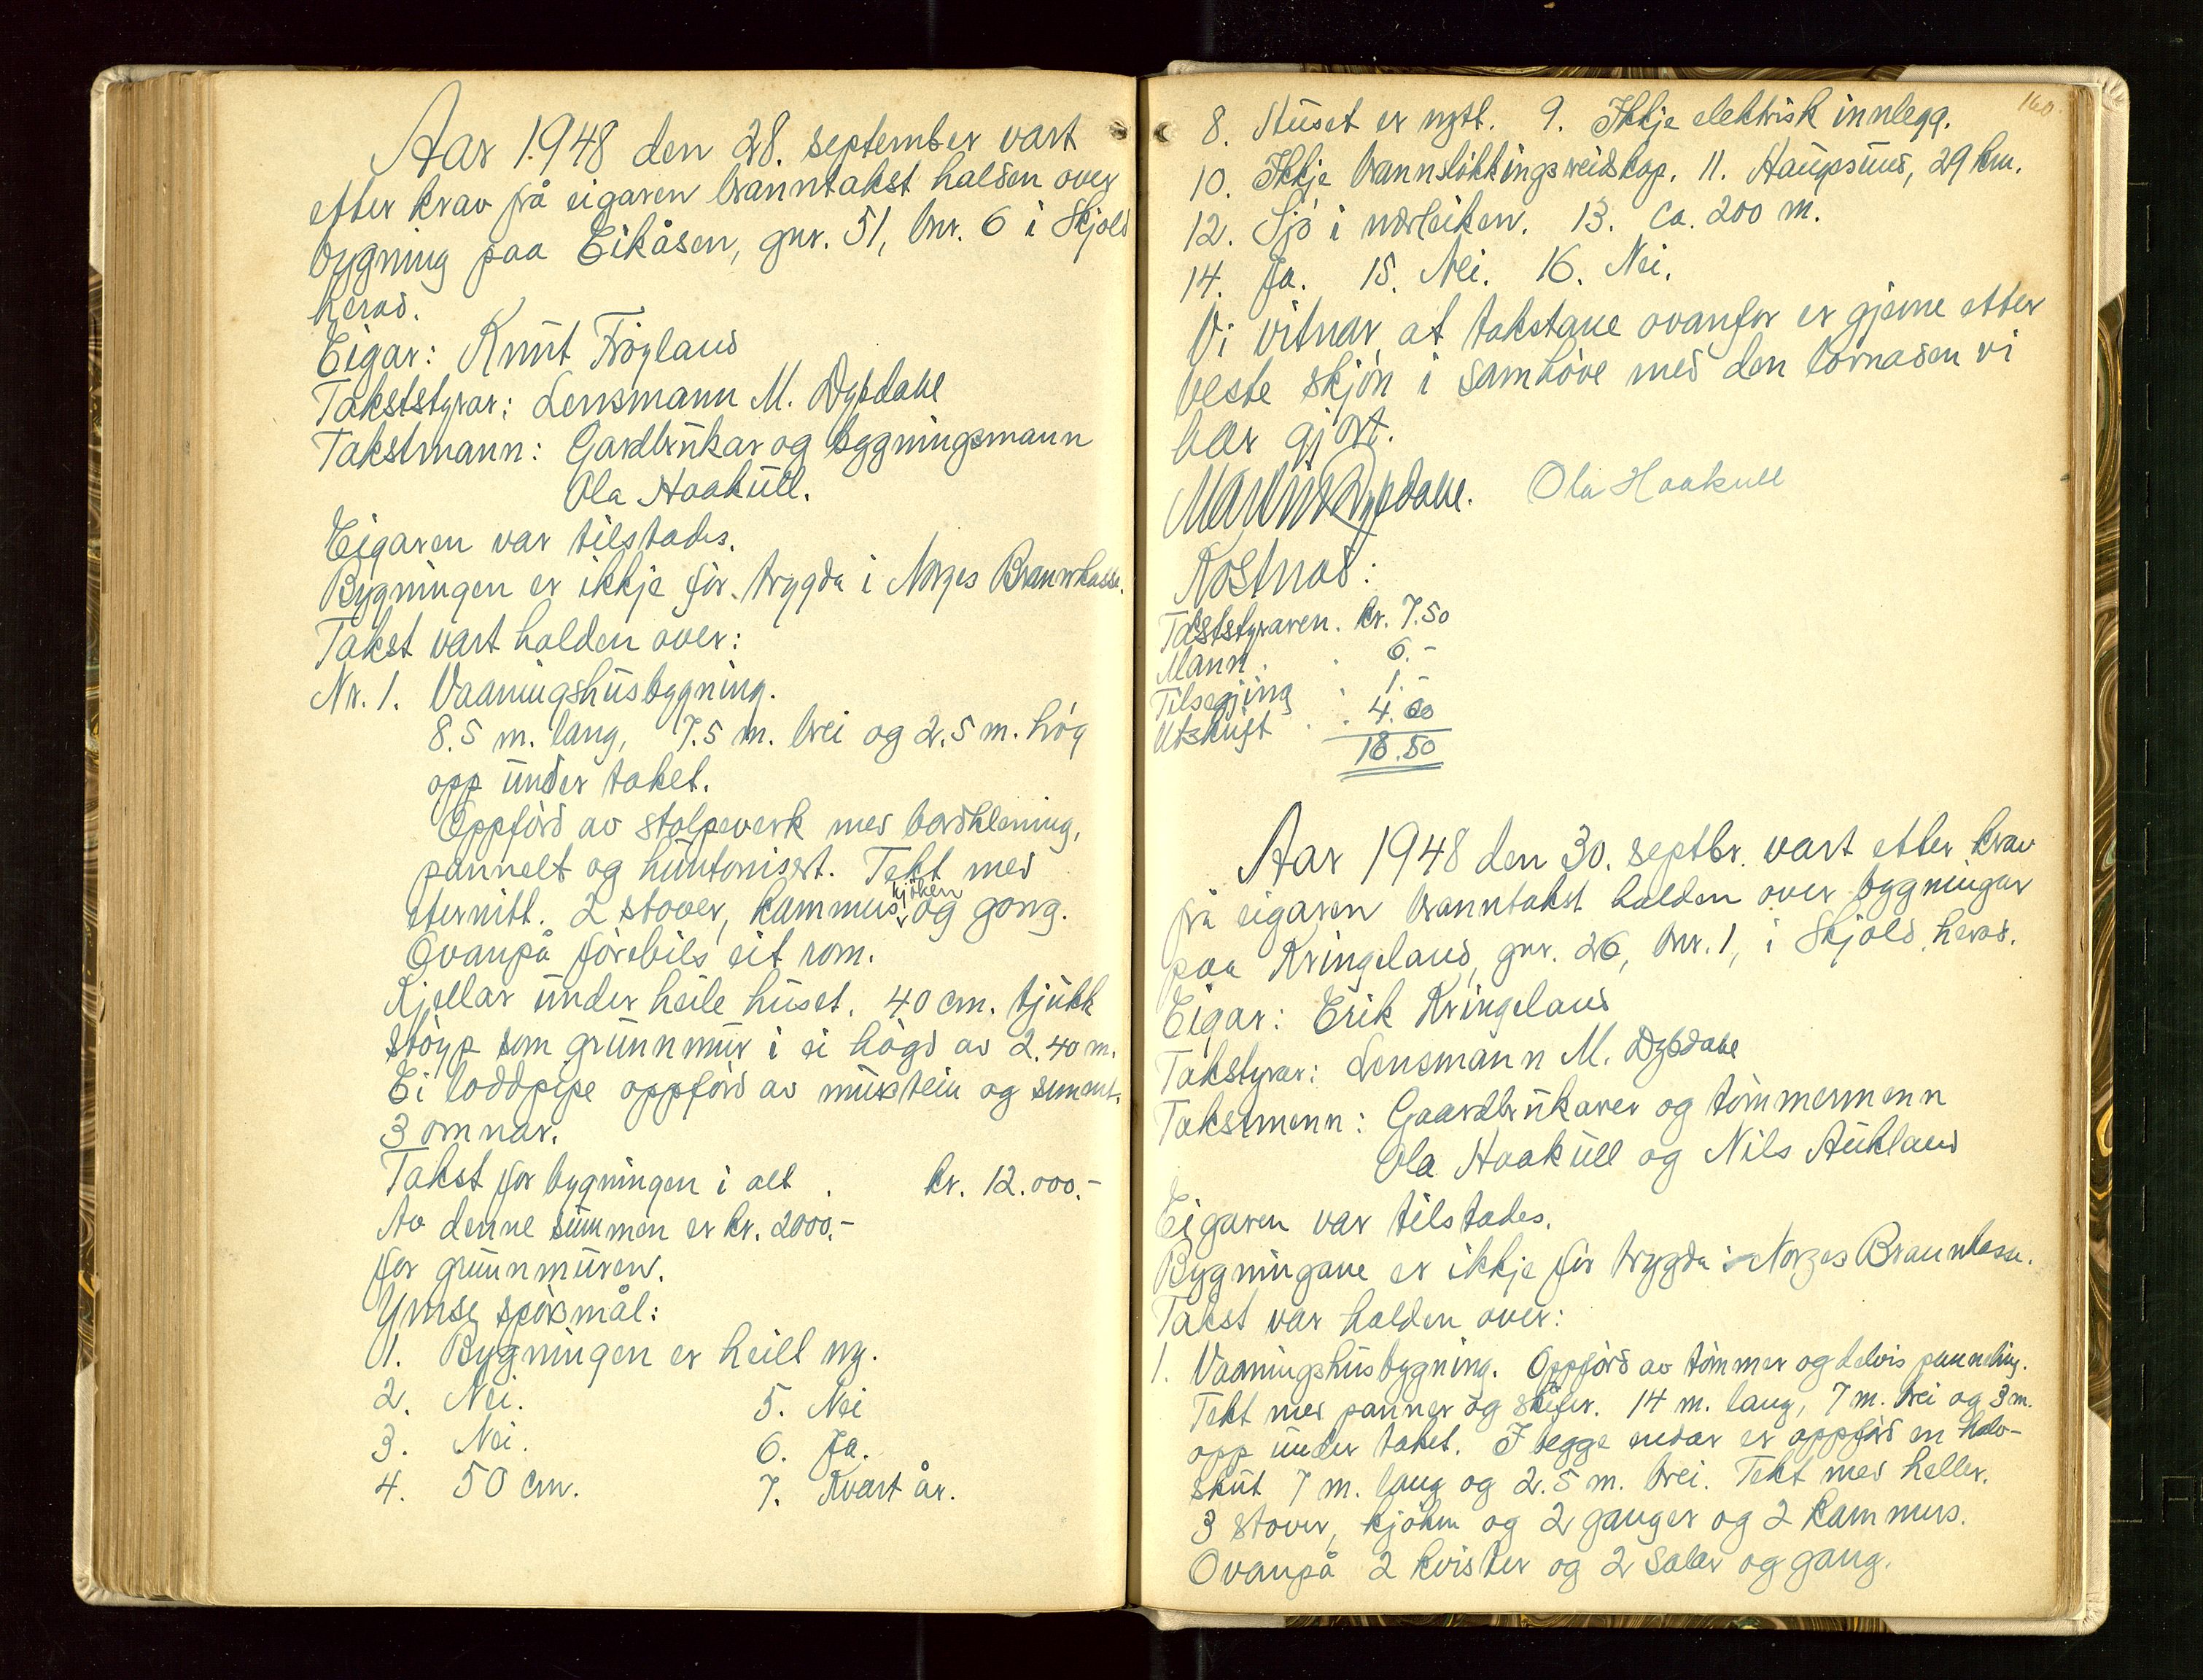 Aar 1948 den 28. september vart
etter krav frå eigaren branntakst halden over
bygning paa Eikåsen, gnr. 51, bnr. 6 i Skjold
herad.
Eigar: Knut Fröyland
Takststyrar: Lensmann M. Dybdahl
Takstmann: Gardbrukar og bygningsmann
Ola Haakull.
Eigaren var tilstades.
Bygningen er ikkje för trygda i Norges Brannkasse.
Takst vart halden over:
Nr. 1. Vaaningshusbygning.
8.5 m. lang, 7.5 m. brei og 2.5 m. hög
opp under taket.
Oppförd av stolpeverk med bordklening,
pannelt og huntonisert. Tekt med
eternitt. 2 stover, kammers, kjöken og gong.
Ovanpå förebils eit rom.
Kjellar under heile huset. 40 cm. tjukk
stöyp som grunnmur i ei högd av 2.40 m.
Ei loddpipe oppförd av murstein og sement.
3 omnar.
Takst for bygningen i alt . kr. 12.000.-
Av denne summen er kr. 2000.-
for grunnmuren.
Ymse spörsmål:
1. Bygningen er heilt ny.
2. Nei. 5. Nei
3. Nei. 6. Ja.
4. 50 cm. 7. Kvart år.
160.
8. Huset er nytt. 9. Ikkje elektrisk innlegg.
10. Ikkje brannslökkingsreidskap. 11. Haugesund, 29 km.
12. Sjö i närleiken. 13. ca. 200 m.
14. Ja. 15. Nei. 16. Nei.
Vi vitnar at takstane ovanfor er gjevne etter
beste skjön i samhöve med den lovnaden vi
har gjort.
Dybdahl. Ola Haakull
Kostnad:
Takststyraren. kr. 7.50
Mann . . 6.-
Tilsegjing . 1.-
Utskrift . . 4.00
18.50
Aar 1948 den 30. septbr. vart etter krav
frå eigaren branntakst halden over bygningar
paa Kringeland, gnr. 26, bnr. 1, i Skjold herad.
Eigar: Erik Kringeland
Takstyrar: Lensmann M. Dybdahl
Takstmenn: Gaardbrukarer og tömmermenn
Ola Haakull og Nils Aukland
Eigaren var tilstades.
Bygningane er ikkje för trygda i Norges Brannkasse.
Takst var halden over:
1. Vaaningshusbygning. Oppförd av tömmer og delvis panneling.
Tekt med panner og skifer. 14 m. lang, 7 m. brei og 3 m.
opp under taket. I begge endar er oppförd en halv-
skut 7 m. lang og 2.5 m. brei. Tekt med heller.
3 stover, kjöken og 2 ganger og 2 kammers.
Ovanpå 2 kvister og 2 salar og gang.